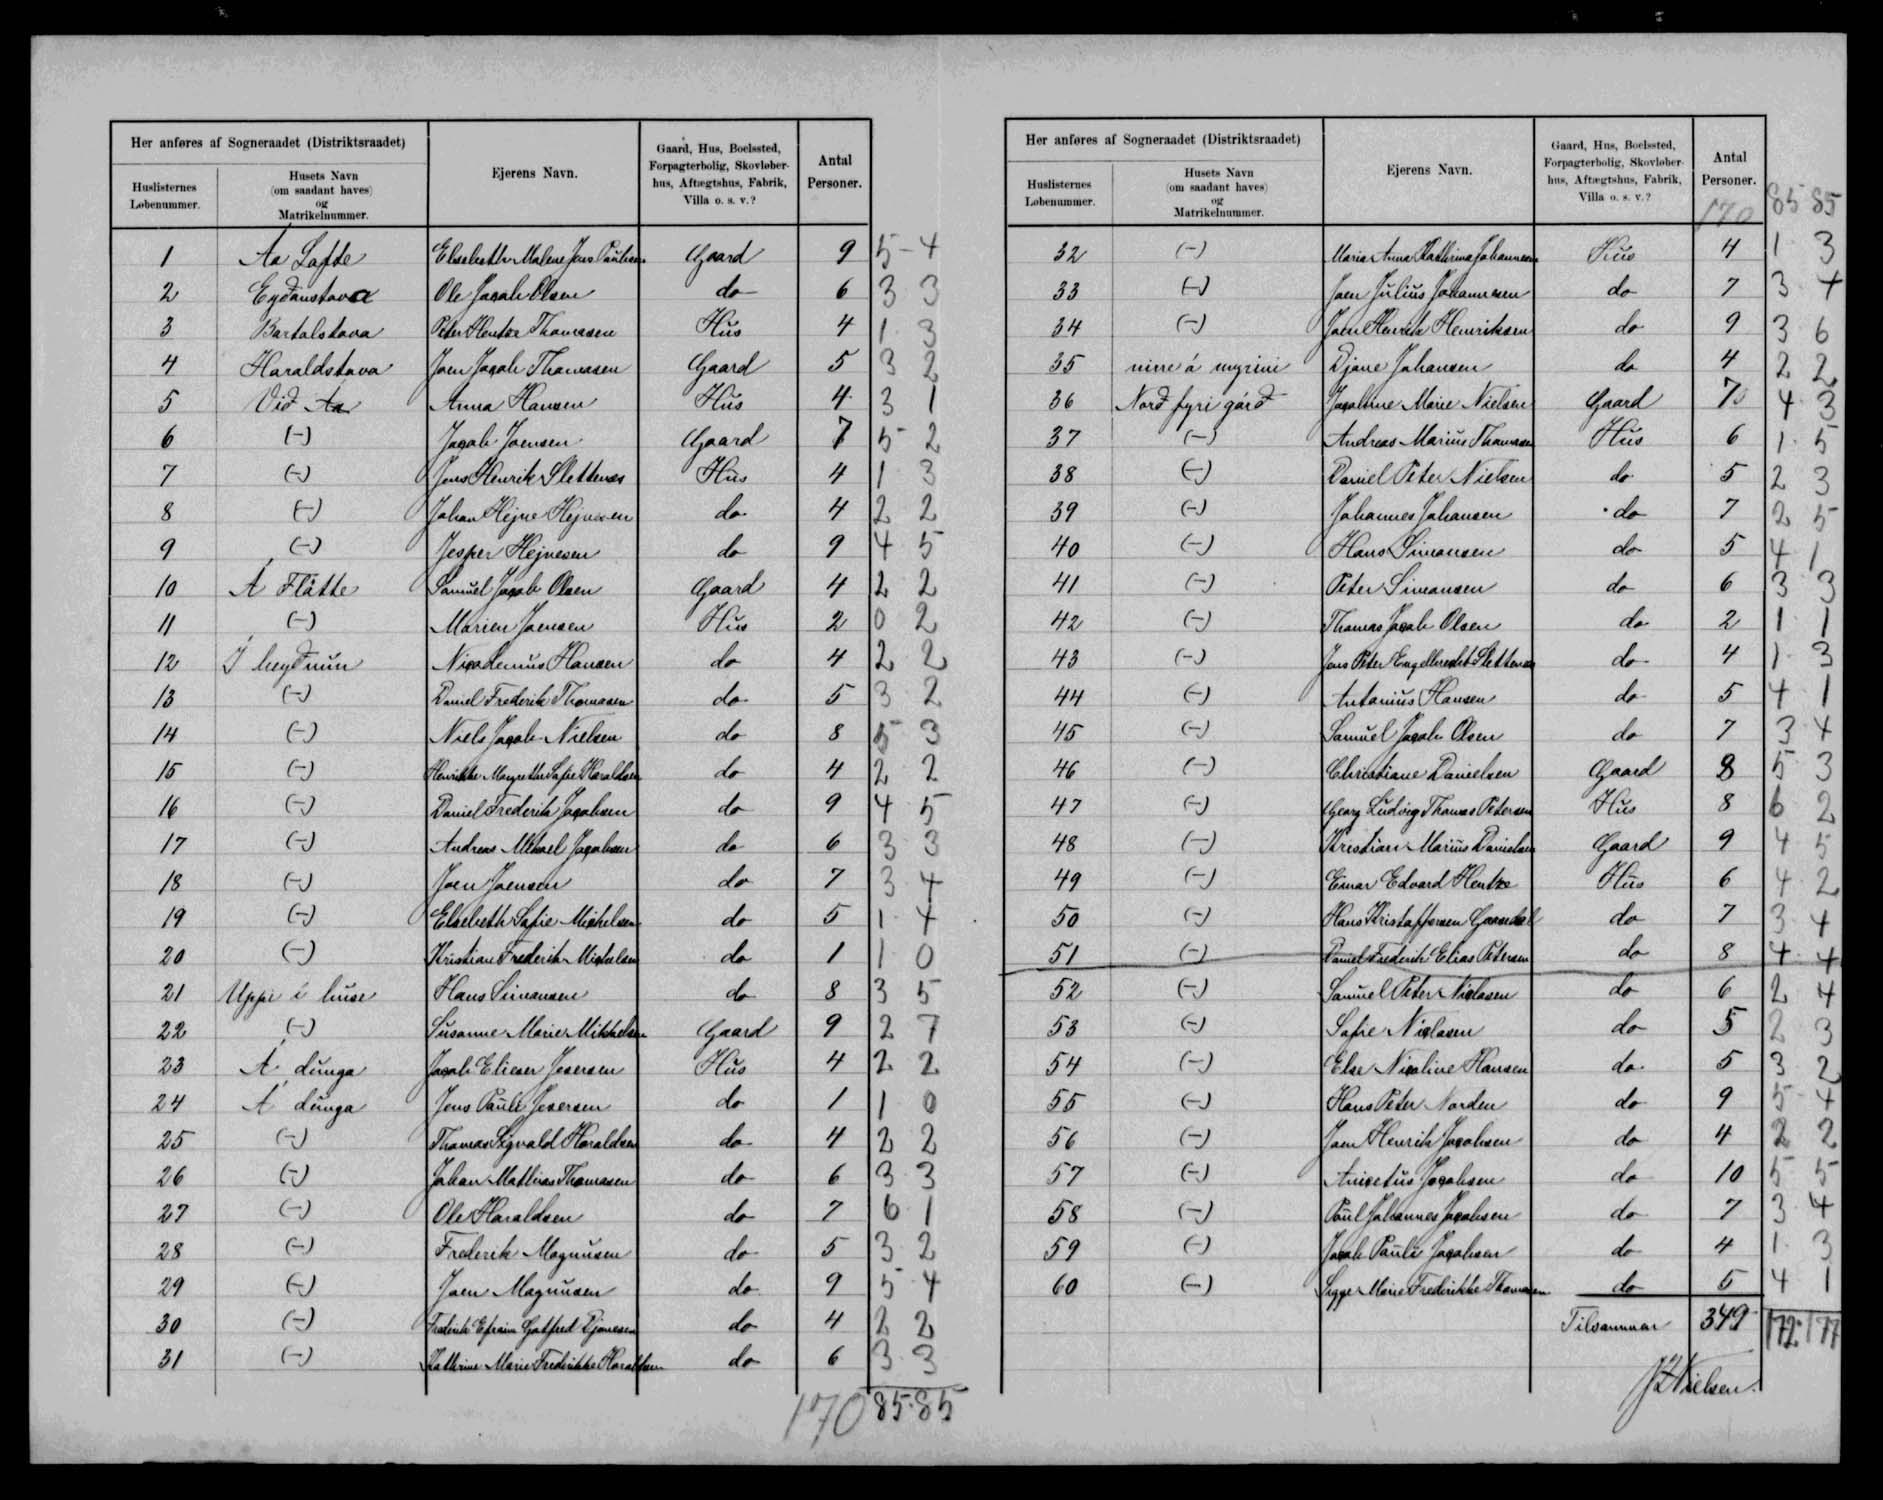 Her anføres af Sogneraadet (Distriktsraadet)
Huslisternes Løbenummer.
Husets Navn (om saadant haves) og Matrikelnummer.
Ejerens Navn.
Gaard, Hus, Boelssted, Forpagterbolig, Skovløberhus, Aftægtshus, Fabrik, Villa o. s. v.?
Antal Personer.
1 Aa Lafte Elsebeth Malene Jens Paulsen Gaard 9 5-4
2 Eydanstova Ole Jacob Olsen do 6 3 3
3 Bartalstova Peter Hentze Thomasen Hus 4 1 3
4 Haraldstova Joen Jacob Thomasen Gaard 5 3 2
5 Við Aa Anna Hansen Hus 4 3 1
6 (-) Jacob Joensen Gaard 7 5 2
7 (-) Jens Henrik Slettenes Hus 4 1 3
8 (-) Johan Hejne Hejnesen do 4 2 2
9 (-) Jesper Hejnesen do 9 4 5
10 Á Fløtte Samuel Jacob Olsen Gaard 4 2 2
11 (-) Marien Joensen Hus 2 0 2
12 Í heyðnun Nicodemus Hansen do 4 2 2
13 (-) Daniel Frederik Thomasen do 5 3 2
14 (-) Niels Jacob Nielsen do 8 5 3
15 (-) Henrikke Margrethe Sofie Haraldsen do 4 2 2
16 (-) Daniel Frederik Jacobsen do 9 4 5
17 (-) Andreas Mikael Jacobsen do 6 3 3
18 (-) Joen Joensen do 7 3 4
19 (-) Elsebeth Sofie Michelsen do 5 1 4
20 (-) Kristian Frederik Michelsen do 1 1 0
21 Uppi í húse Hans Simonsen do 8 3 5
22 (-) Susanne Marie Mikkelsen Gaard 9 2 7
23 Á dunga Jacob Elieser Jesersen Hus 4 2 2
24 Á dunga Jens Pauli Jesersen do 1 1 0
25 (-) Thomas Sigvald Haraldsen do 4 2 2
26 (-) Johan Mathias Thomasen do 6 3 3
27 (-) Ole Haraldsen do 7 6 1
28 (-) Frederik Magnusen do 5 3 2
29 (-) Joen Magnusen do 9 5 4
30 (-) Frederik Efraim Gotfred Djonesen do 4 2 2
31 (-) Kathrine Marie Frederikke Haraldsen do 6 3 3
170 85-85
Her anføres af Sogneraadet (Distriktsraadet)
Huslisternes Løbenummer.
Husets Navn (om saadant haves) og Matrikelnummer.
Ejerens Navn.
Gaard, Hus, Boelssted, Forpagterbolig, Skovløberhus, Aftægtshus, Fabrik, Villa o. s. v.?
Antal Personer.
170 85 85
32 (-) Maria Anna Kathrina Johannesen Hus 4 1 3
33 (-) Joen Julius Johannesen do 7 3 4
34 (-) Joen Henrik Henriksen do 9 3 6
35 nirre á myrini Djone Johansen do 4 2 2
36 Norð fyri garð Jacobine Marie Nielsen Gaard 7 4 3
37 (-) Andreas Marius Thomasen Hus 6 1 5
38 (-) Daniel Peter Nielsen do 5 2 3
39 (-) Johannes Johansen do 7 2 5
40 (-) Hans Simonsen do 5 4 1
41 (-) Peter Simonsen do 6 3 3
42 (-) Thomas Jacob Olsen do 2 1 1
43 (-) Jens Peter Engelbrecht Slettenes do 4 1 3
44 (-) Antonius Hansen do 5 4 1
45 (-) Samuel Jacob Olsen do 7 3 4
46 (-) Christiane Danielsen Gaard 8 5 3
47 (-) Georg Ludvig Thomas Petersen Hus 8 6 2
48 (-) Kristian Marius Danielsen Gaard 9 4 5
49 (-) Einar Edvard Hentze Hus 6 4 2
50 (-) Hans Kristoffersen Gaasedal do 7 3 4
51 (-) Daniel Frederik Elias Petersen do 8 4 4
52 (-) Samuel Peter Niclasen do 6 2 4
53 (-) Sofie Niclasen do 5 2 3
54 (-) Else Nicoline Hansen do 5 3 2
55 (-) Hans Peter Norden do 9 5 4
56 (-) Joen Henrik Jacobsen do 4 2 2
57 (-) Anicetus Jacobsen do 10 5 5
58 (-) Paul Johannes Jacobsen do 7 3 4
59 (-) Jacob Pauli Jacobsen do 4 1 3
60 (-) Sigge Marie Frederikke Thomasen do 5 4 1
Tilsammar 349 172-177
Nielsen.